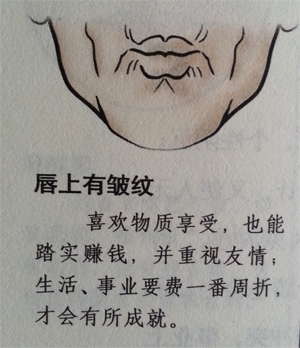 唇上有皱纹
喜欢物质享受，也能
踏实赚钱，并重视友情；
生活、事业要费一番周折，
才会有所成就。